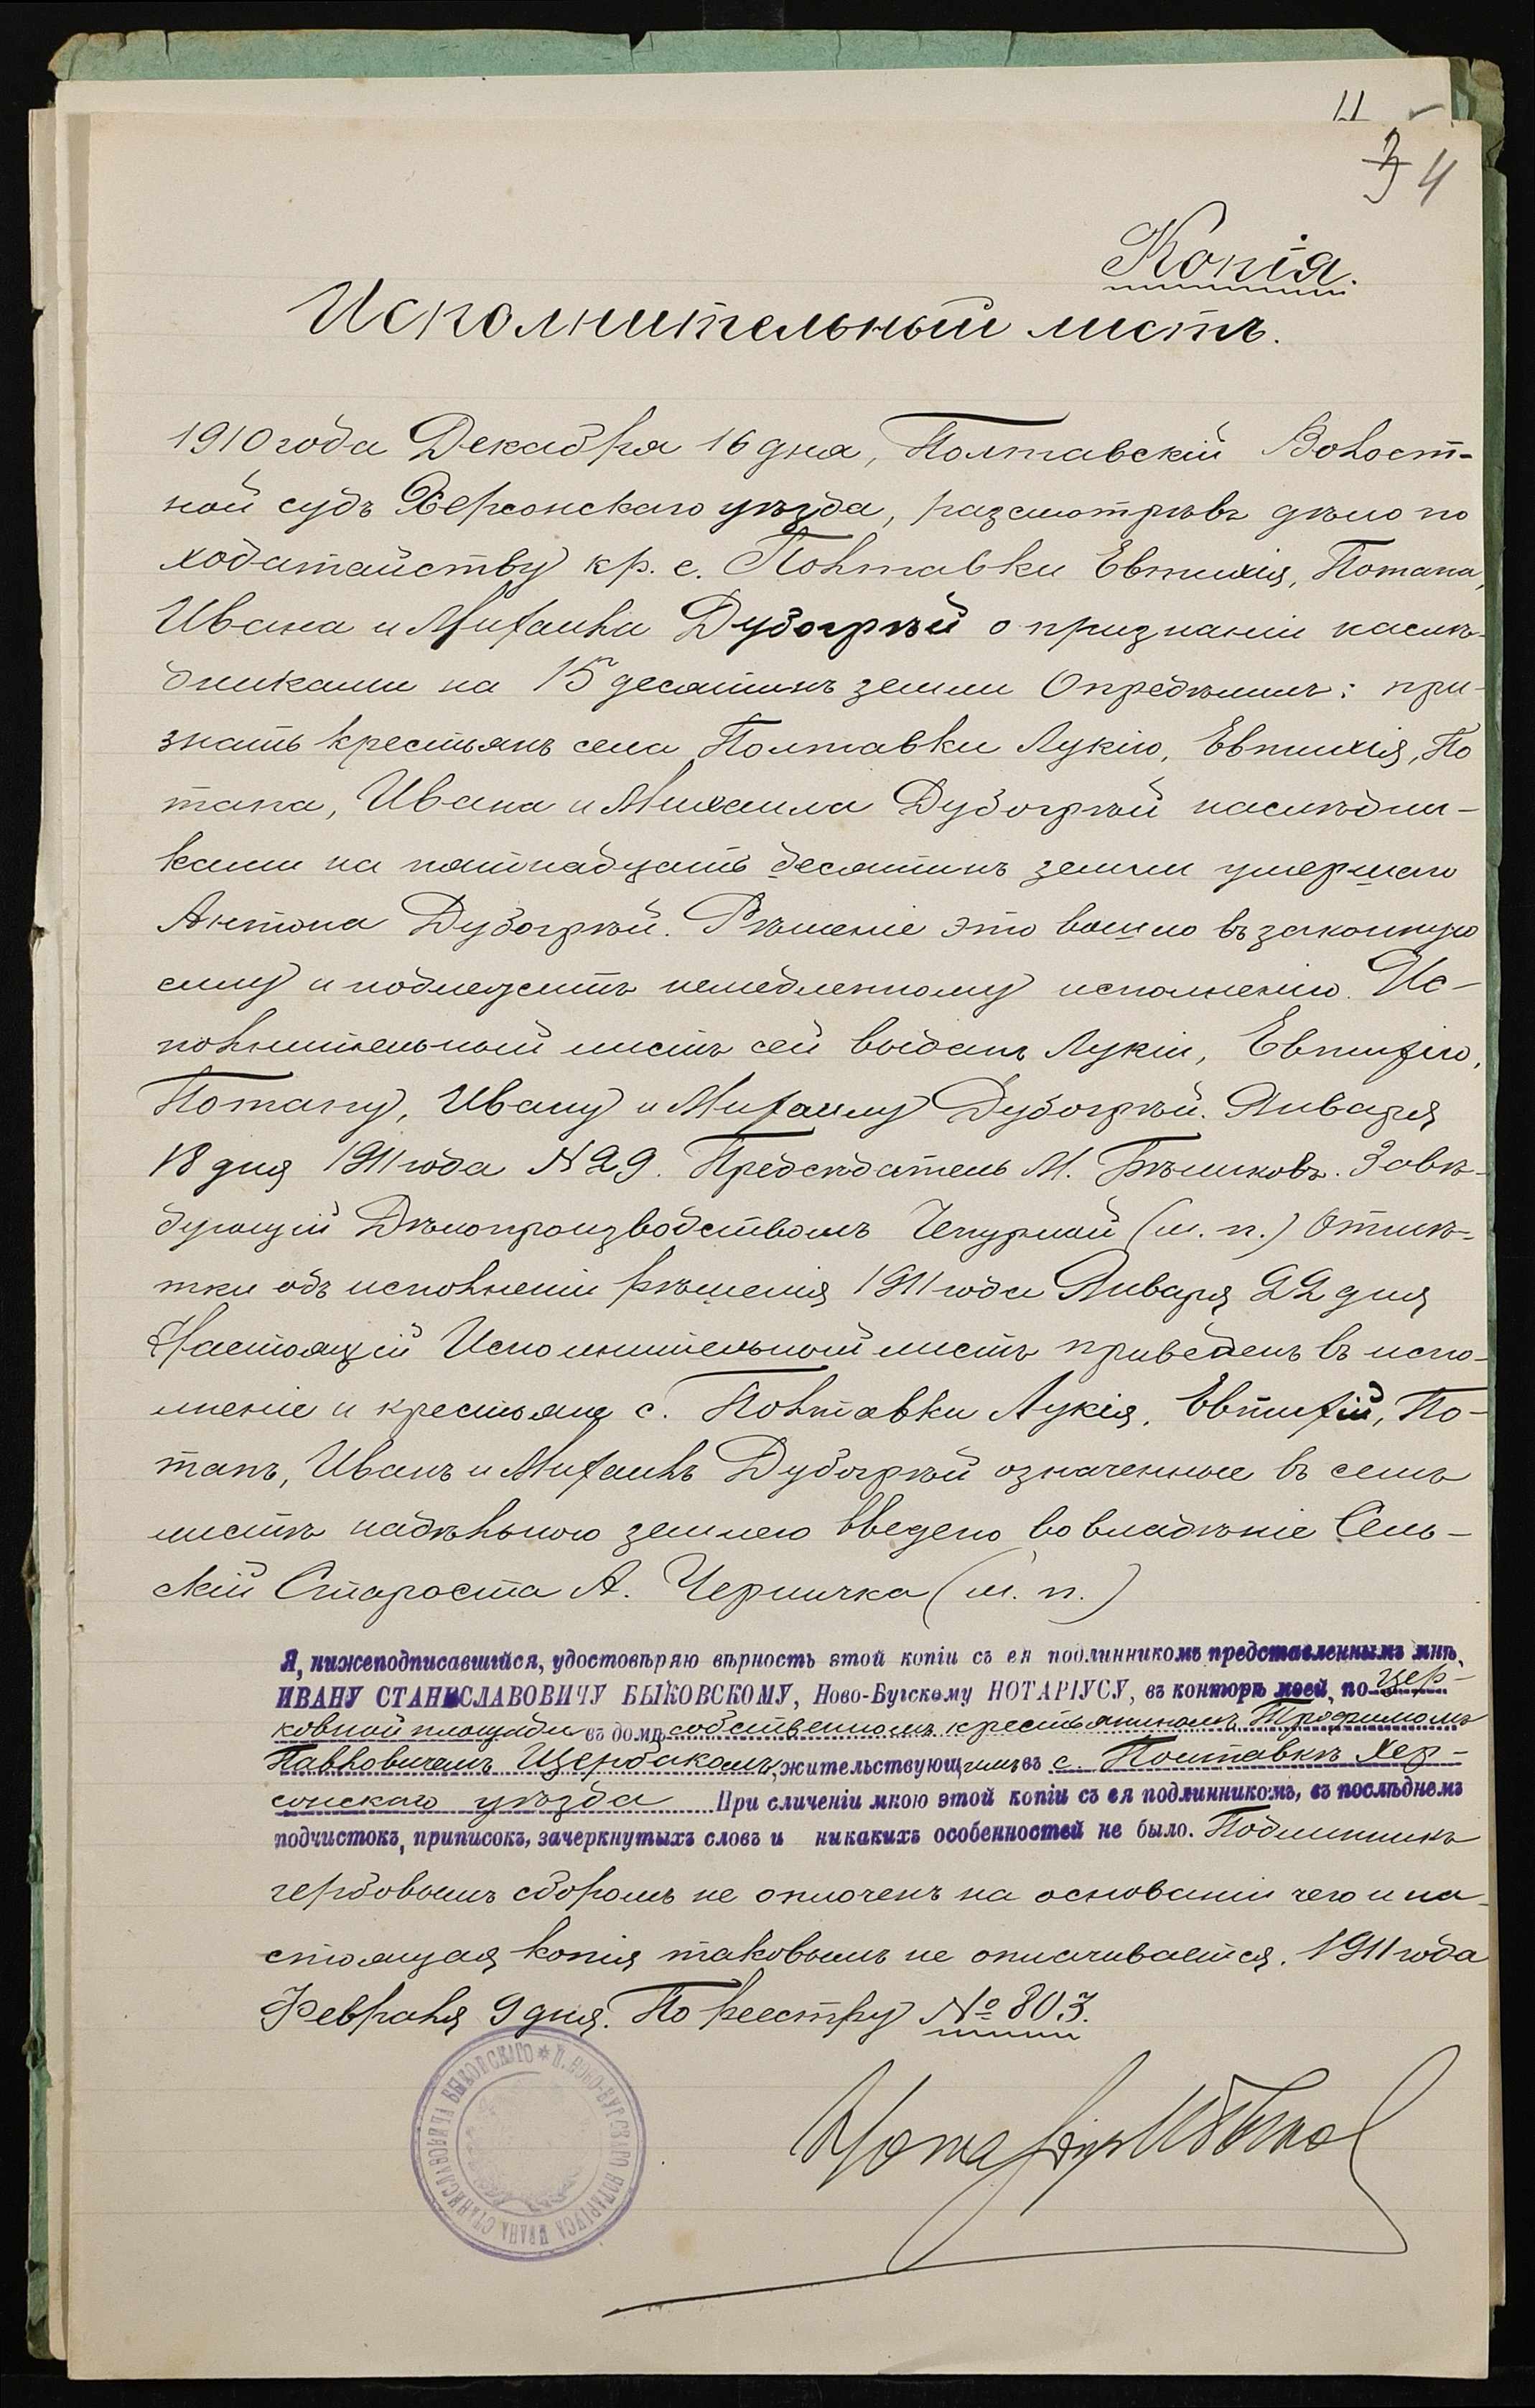 4
3 4
Копія.
Исполнительный листъ.
1910 года Декабря 16 дня, Полтавскій Волост-
ной судъ Херсонскаго уѣзда, разсмотрѣвъ дѣло по
ходатайству кр. с. Полтавки Евтихія, Потапа,
Ивана и Михаила Дубогрѣй о признаніи наслѣ-
дниками на 15 десятинъ земли Опредѣлилъ: при-
знать крестьянъ села Полтавки Лукію, Евтихія, По
тапа, Ивана и Михаила Дубогрѣй наслѣдни-
ками на пятнадцать десятинъ земли умершаго
Антона Дубогрѣй. Рѣшеніе это вошло въ законную
силу и подлежитъ немедленному исполненію. Ис-
полнительный листъ сей выданъ Лукіи, Евтихію,
Потапу, Ивану и Михаилу Дубогрѣй. Января
18 дня 1911 года № 29. Предсѣдатель М. Бѣликовъ. Завѣ-
дующій Дѣлопроизводствомъ Чепурной (м. п.) Отмѣ-
тки объ исполненіи рѣшенія 1911 года Января 22 дня
Настоящій Исполнительный листъ приведенъ въ испо-
лненіе и крестьяне с. Полтавки Лукія, Евтихій, По-
тапъ, Иванъ и Михаилъ Дубогрѣй означенные въ семъ
листѣ надѣльною землею введено во владѣніе Сель-
скій Староста А. Черничка (м. п.)
Я, нижеподписавшійся, удостовѣряю вѣрность этой копіи съ ея подлинникомъ представленнымъ мнѣ,
ИВАНУ СТАНИСЛАВОВИЧУ БЫКОВСКОМУ, Ново-Бугскому НОТАРІУСУ, въ конторѣ моей, по Цер-
ковной площади въ домѣ собственномъ крестьяниномъ Трофимомъ
Павловичемъ Щербакомъ, жительствующимъ въ с. Полтавкѣ Хер-
сонскаго уѣзда При сличеніи мною этой копіи съ ея подлинникомъ, въ послѣднемъ
подчистокъ, приписокъ, зачеркнутыхъ словъ и никакихъ особенностей не было. Подлинникъ
гербовымъ сборомъ не оплоченъ на основаніи чего и на-
стоящая копія таковымъ не оплачивается. 1911 года
Февраля 9 дня. По реестру № 803.
НОВО-БУГСКАГО НОТАРІУСА ИВАНА СТАНИСЛАВОВИЧА БЫКОВСКАГО
Нотаріусъ